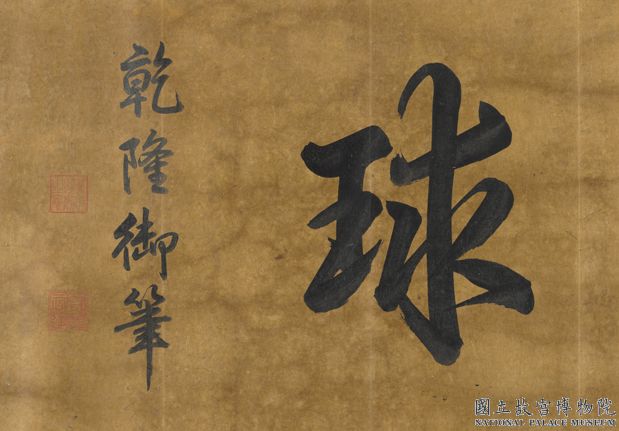 球
乾隆御筆
國立故宮博物院
NATIONAL PALACE MUSEUM